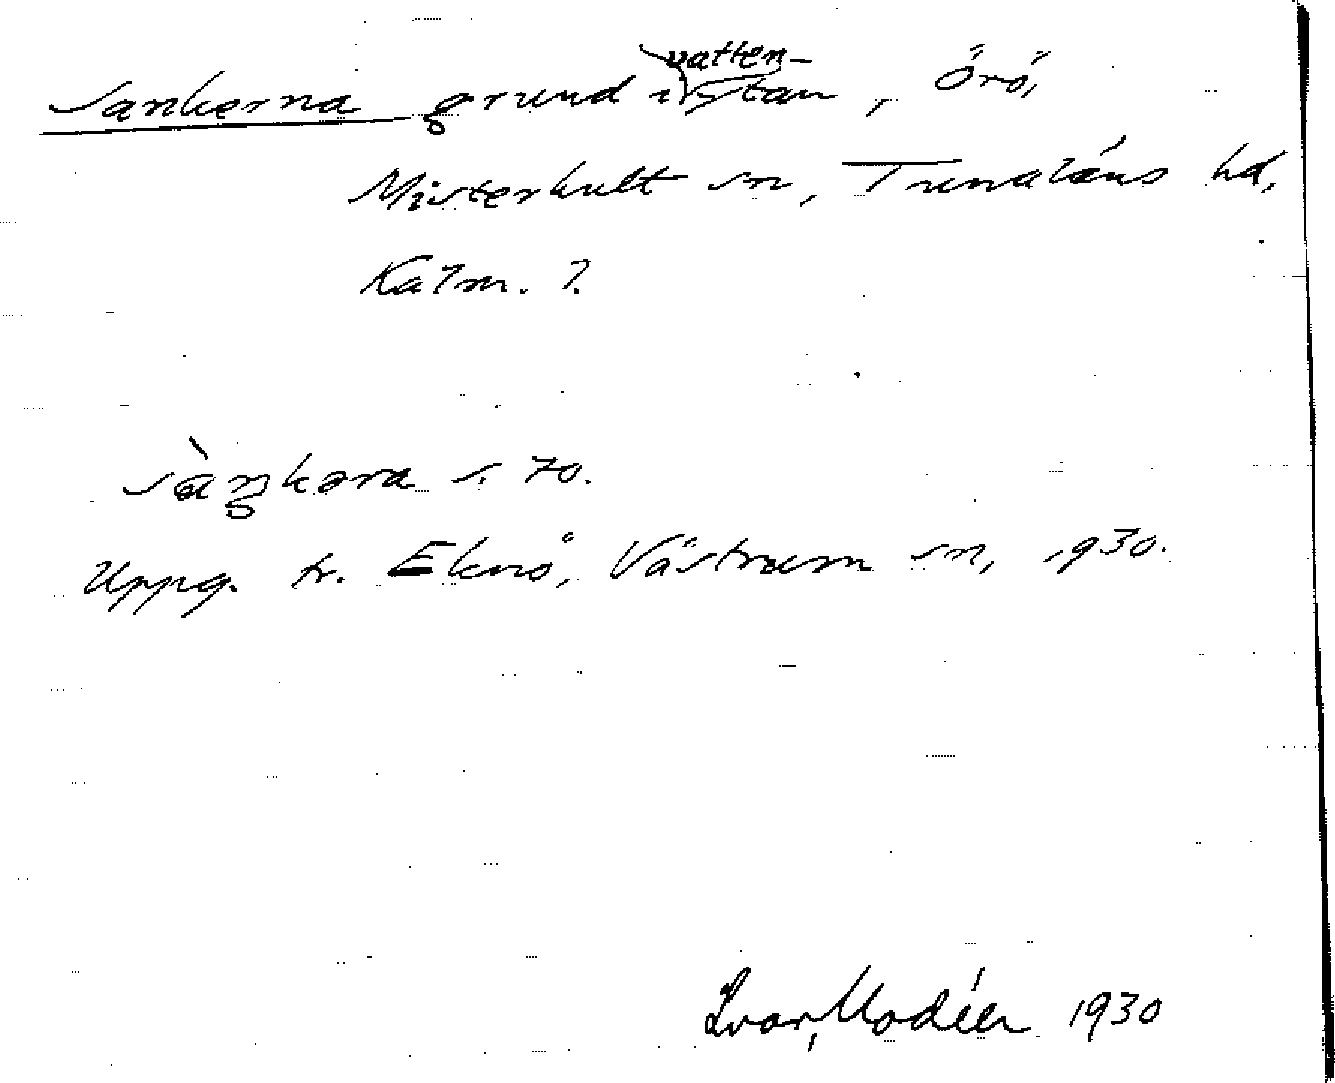 Sankerna grund i vattenytan, Örö,
Misterhult sn, Tunaläns hd,
Kalm. l.
sàŋkəra s. 70.
Uppg. fr. Eknö, Västrum sn, 1930.
Ivar Modéer 1930